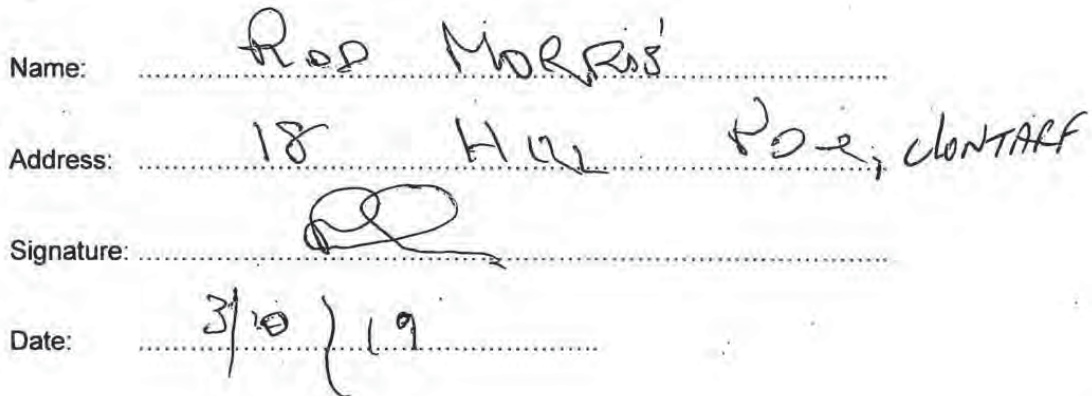 Name: ROD MORRIS
Address: 18 HILL , CLONTARF
Signature:
Date: 3/10/19